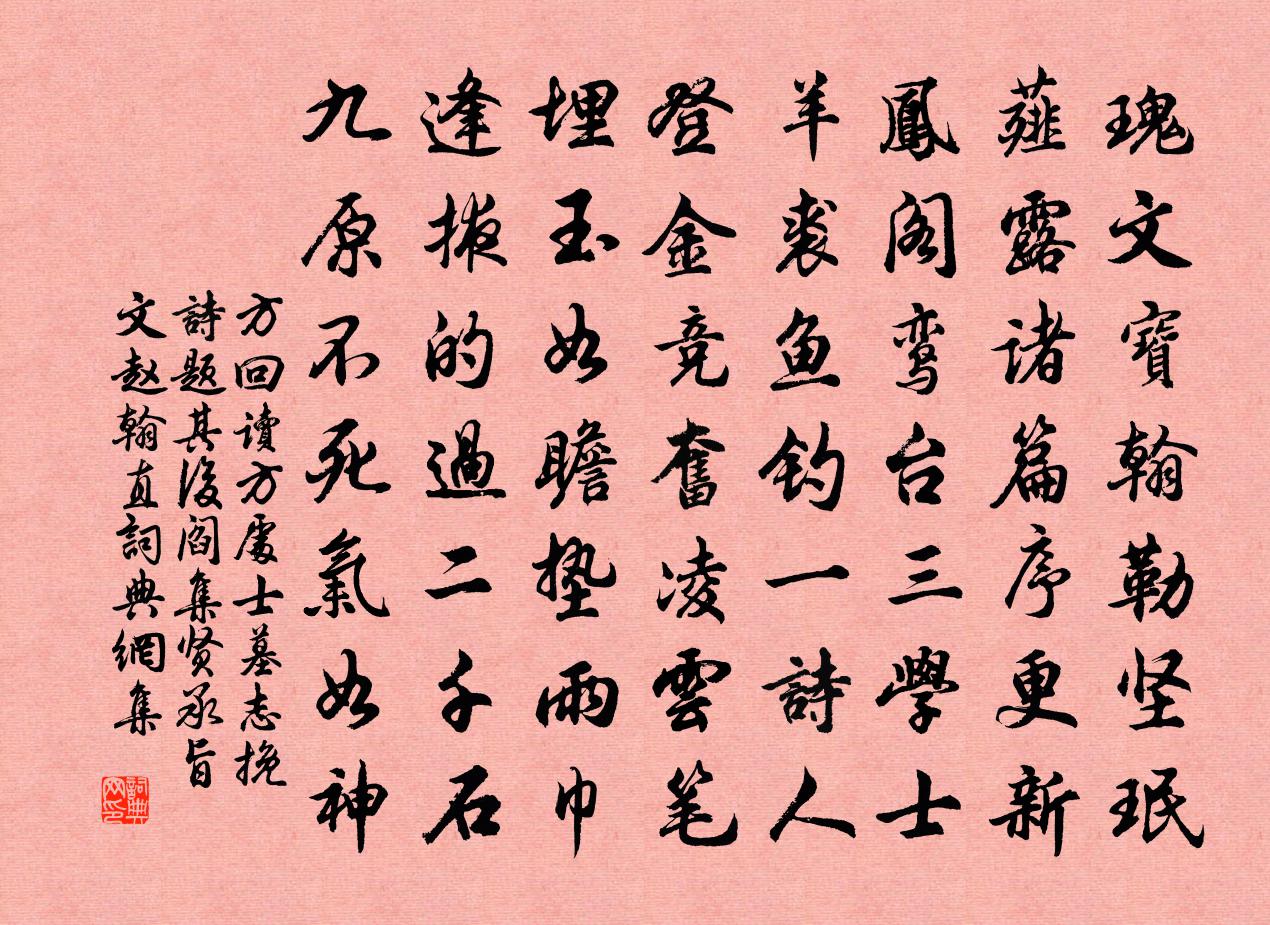 瑰文寶翰勒坚珉
薤露诸篇序更新
鳳阁鸾台三學士
羊裘鱼钓一詩人
登金竞奮凌雲笔
埋玉如瞻垫雨巾
逢掖的過二千石
九原不死氣如神
方回讀方處士墓志挽
詩题其後阎集贤承旨
文赵翰直詞典網集
詞典网印